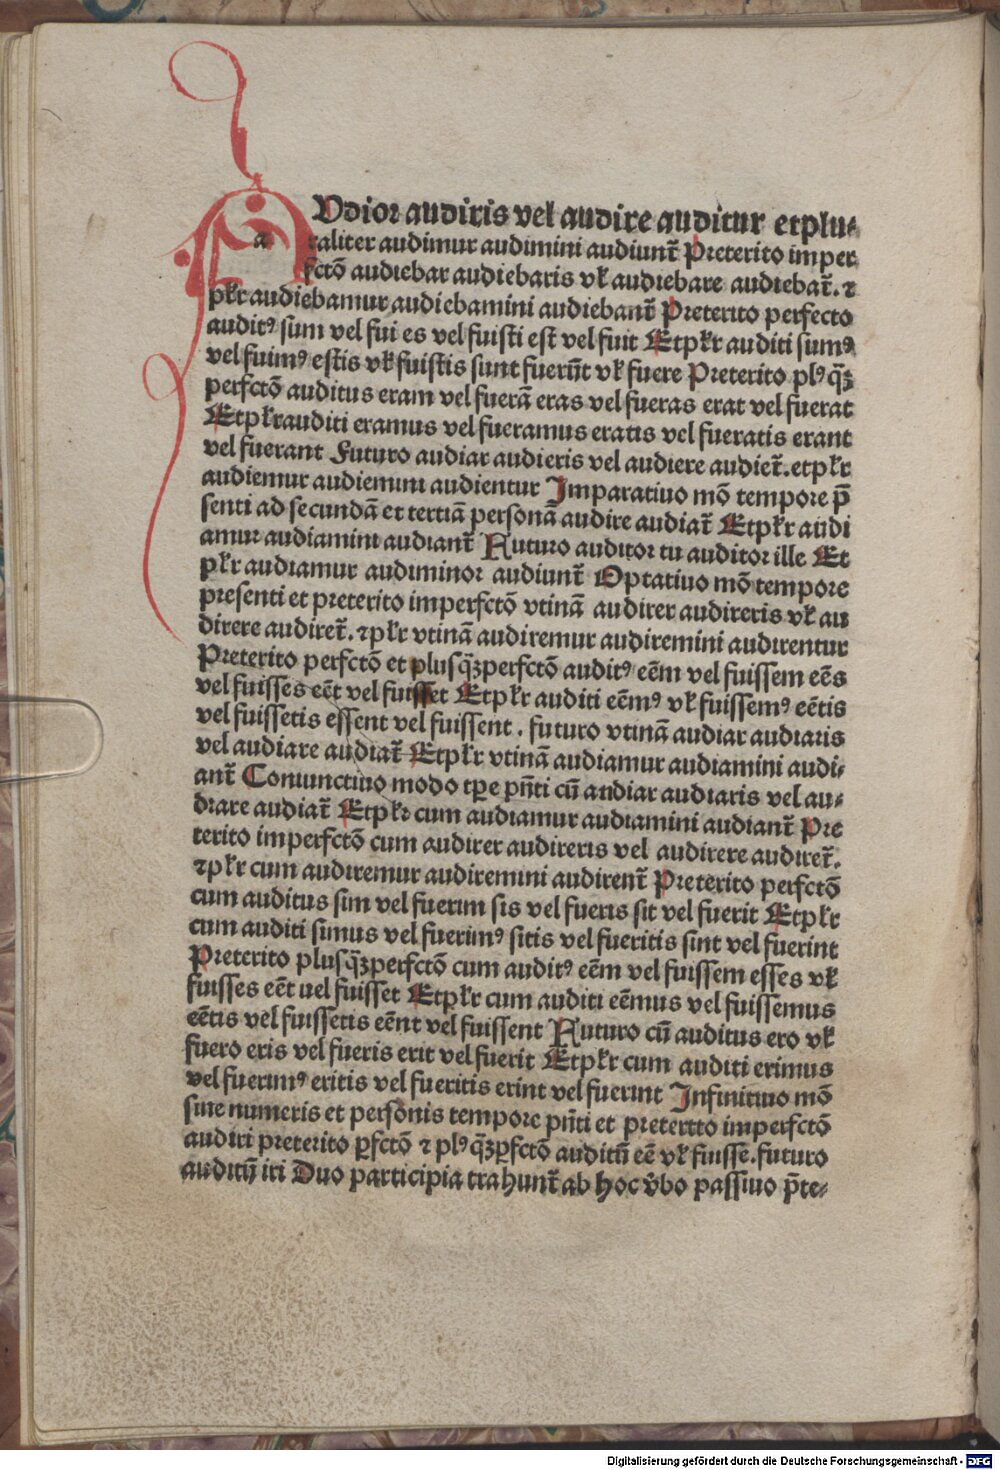 AUdior audiris vel audire auditur etplu⸗
raliter audimur audimini audiunt̃ Preterito imper
fctõ audiebar audiebaris vƚ audiebare audiebat̃. ⁊
pƚr audiebamur audiebamini audiebant̃ Preterito perfecto
auditꝰ sum vel fui es vel fuisti est vel fuit Etpƚr auditi sumꝰ
vel fuimꝰ estis vƚ fuistis sunt fuerũt vƚ fuere Preterito plꝰ q̃ꝫ
perfctõ auditus eram vel fuerã eras vel fueras erat vel fuerat
Etpƚrauditi eramus vel fueramus eratis vel fueratis erant
vel fuerant Futuro audiar audieris vel audiere audiet̃.etpƚr
audiemur audiemini audientur Imparatiuo mõ tempore p̃
senti ad secundã et tertiã personã audire audiat̃ Etpƚr audi
amur audiamini audiant̃ Futuro auditor tu auditor ille Et
pƚr audiamur audiminor audiunt̃ Optatiuo mõ tempore
presenti et preterito imperfctõ vtinã audirer audireris vƚ au
direre audiret̃. ⁊pƚr vtinã audiremur audiremini audirentur
Preterito perfctõ et plusq̃ꝫperfctõ auditꝰ eẽm vel fuissem eẽs
vel fuisses eẽt vel fuisset Etpƚr auditi eẽmꝰ vƚ fuissemꝰ eẽtis
vel fuissetis essent vel fuissent . futuro vtinã audiar audiaris
vel audiare audiat̃ Etpƚr vtinã audiamur audiamini audi⸗
ant̃ Coniunctiuo modo tꝑe pñti cũ audiar audiaris vel au⸗
diare audiat̃ Etpƚr cum audiamur audiamini audiant̃ Pre
terito imperfctõ cum audirer audireris vel audirere audiret̃.
⁊pƚr cum audiremur audiremini audirent̃ Preterito perfctõ
cum auditus sim vel fuerim sis vel fueris sit vel fuerit Etpƚr
cum auditi simus vel fuerimꝰ sitis vel fueritis sint vel fuerint
Preterito plusq̃ꝫperfctõ cum auditꝰ eẽm vel fuissem esses vƚ
fuisses eẽt uel fuisset Etpƚr cum auditi eẽmus vel fuissemus
eẽtis vel fuissetis eẽnt vel fuissent Futuro cũ auditus ero vƚ
fuero eris vel fueris erit vel fuerit Etpƚr cum auditi erimus
vel fuerimꝰ eritis vel fueritis erint vel fuerint Infinitiuo mõ
sine numeris et personis tempore pñti et preterito imperfctõ
audiri preterito ꝑfctõ ⁊ plꝰ q̃ꝫꝑfctõ auditũ eẽ vƚ fuisse.futuro
auditũ iri Duo participia trahunt̃ ab hoc v̉bo passiuo p̃te⸗
Digitalisierung gefördert durch die Deutsche Forschungsgemeinschaft - DFG